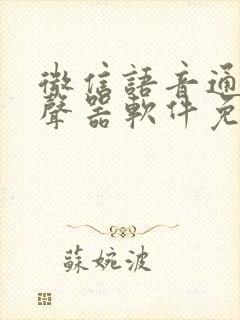 微信語音通
聲器軟件免
蘇婉波